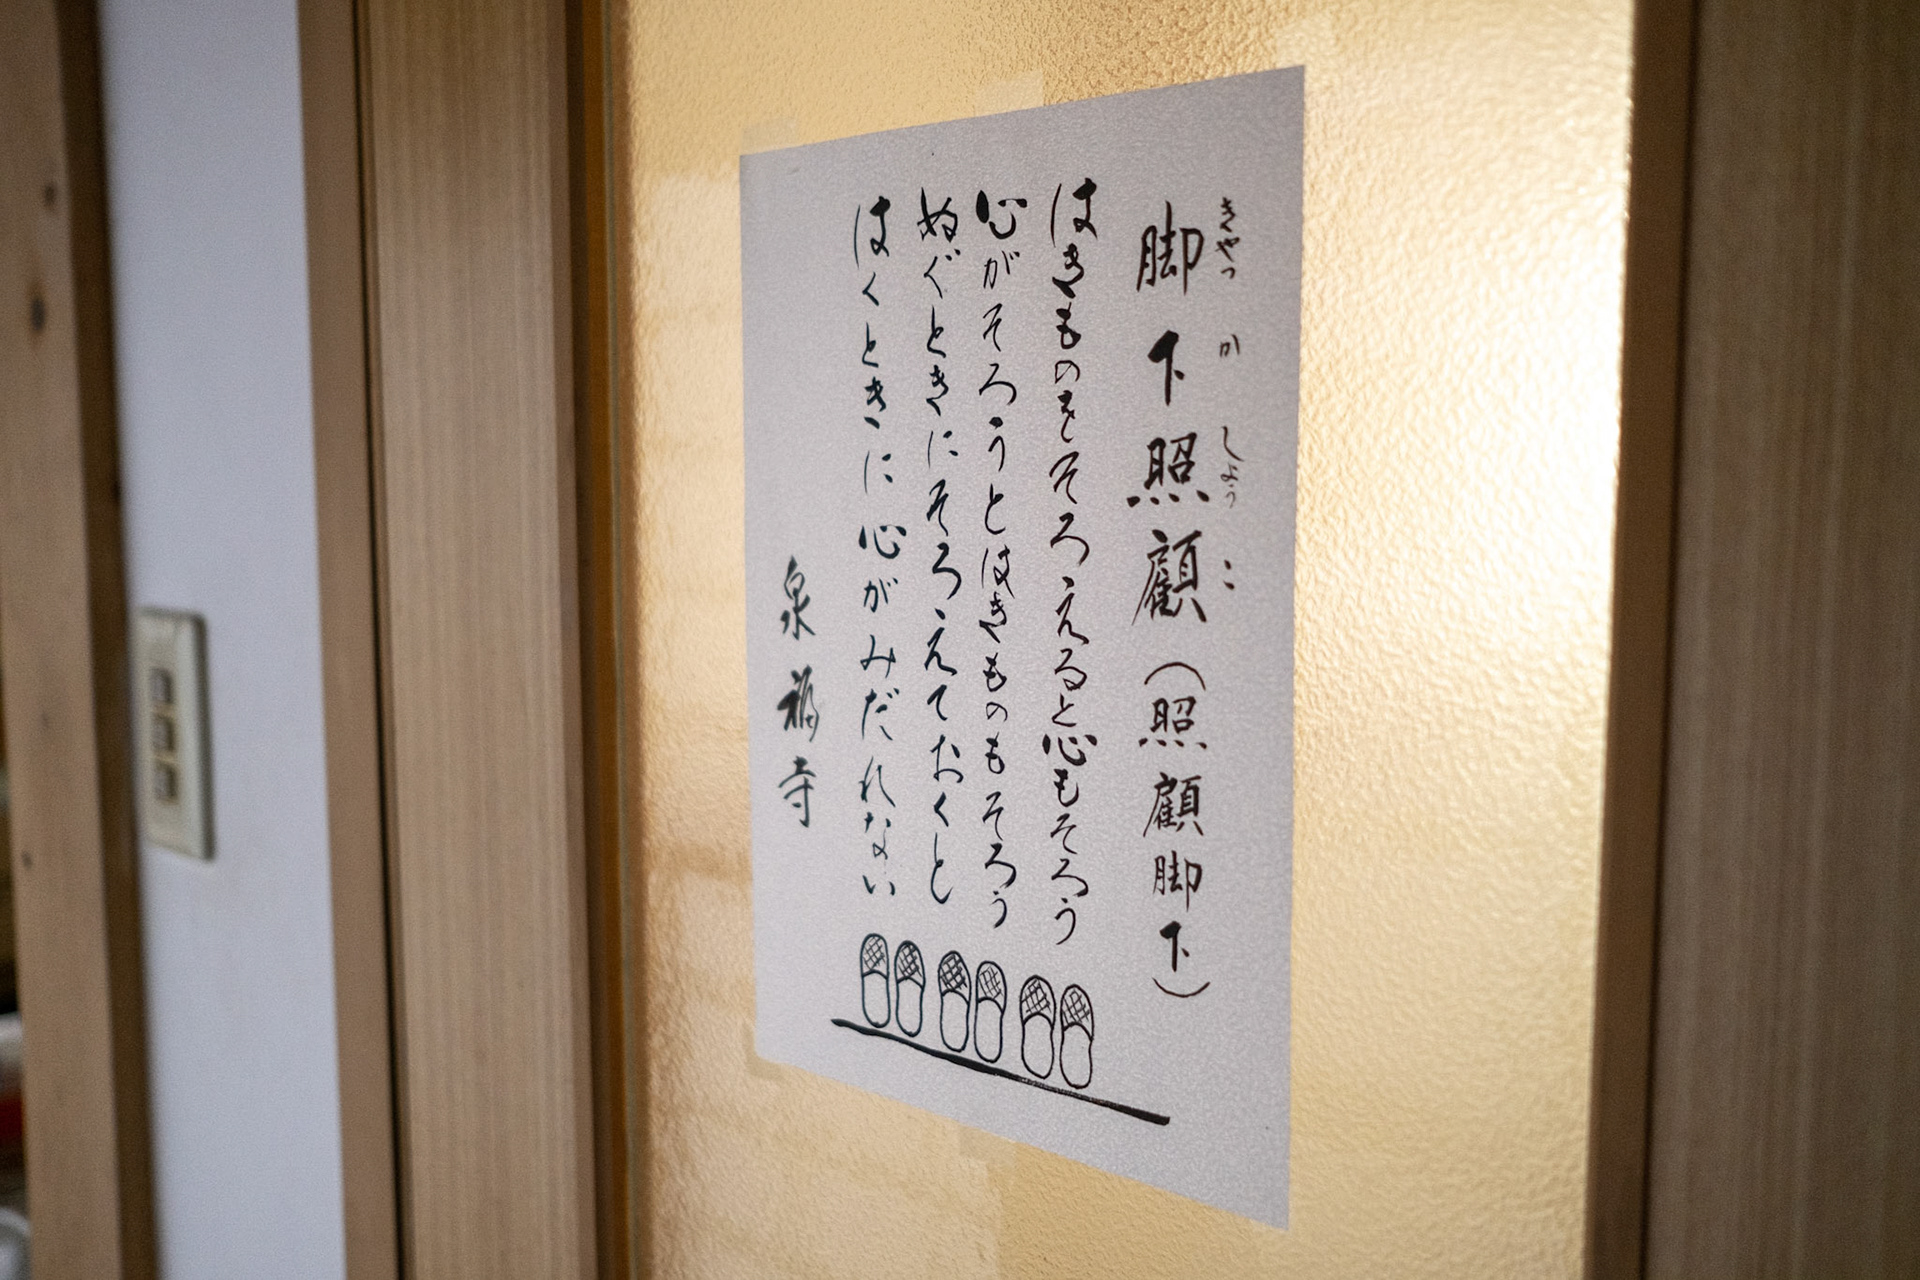 きやつかしようこ
脚下照顧（照顧脚下）
はきものをそろえると心もそろう
心がそろうとはきものもそろう
ぬぐときにそろえておくと
はくときに心がみだれない
泉福寺